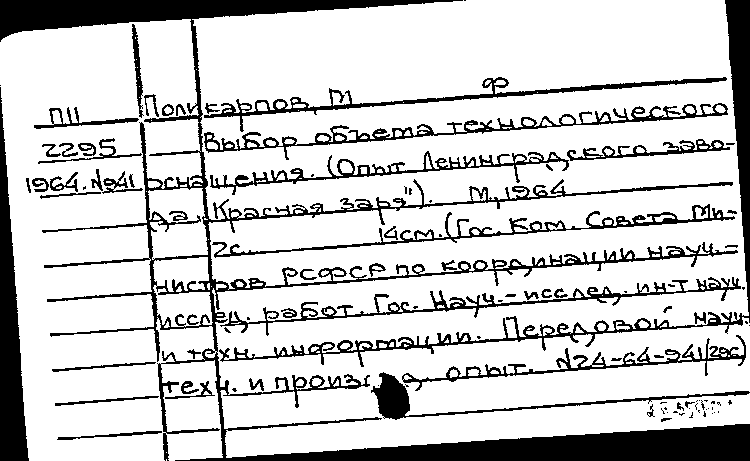 П11 Поликарпов, М ф
2295 Выбор объема технологического
1964.№941 оснащения. (Опыт Ленинградского заво-
да „Красная заря"). М, 1964
2с. 14см. (Гос. Ком. Совета Ми-
нистров РСФСР по координации науч.=
исслед. работ. Гос. Науч.-исслед. ин-т науч.
и техн. информации. Передовой науч.-
техн. и произв. опыт. №24-64-941/29с)